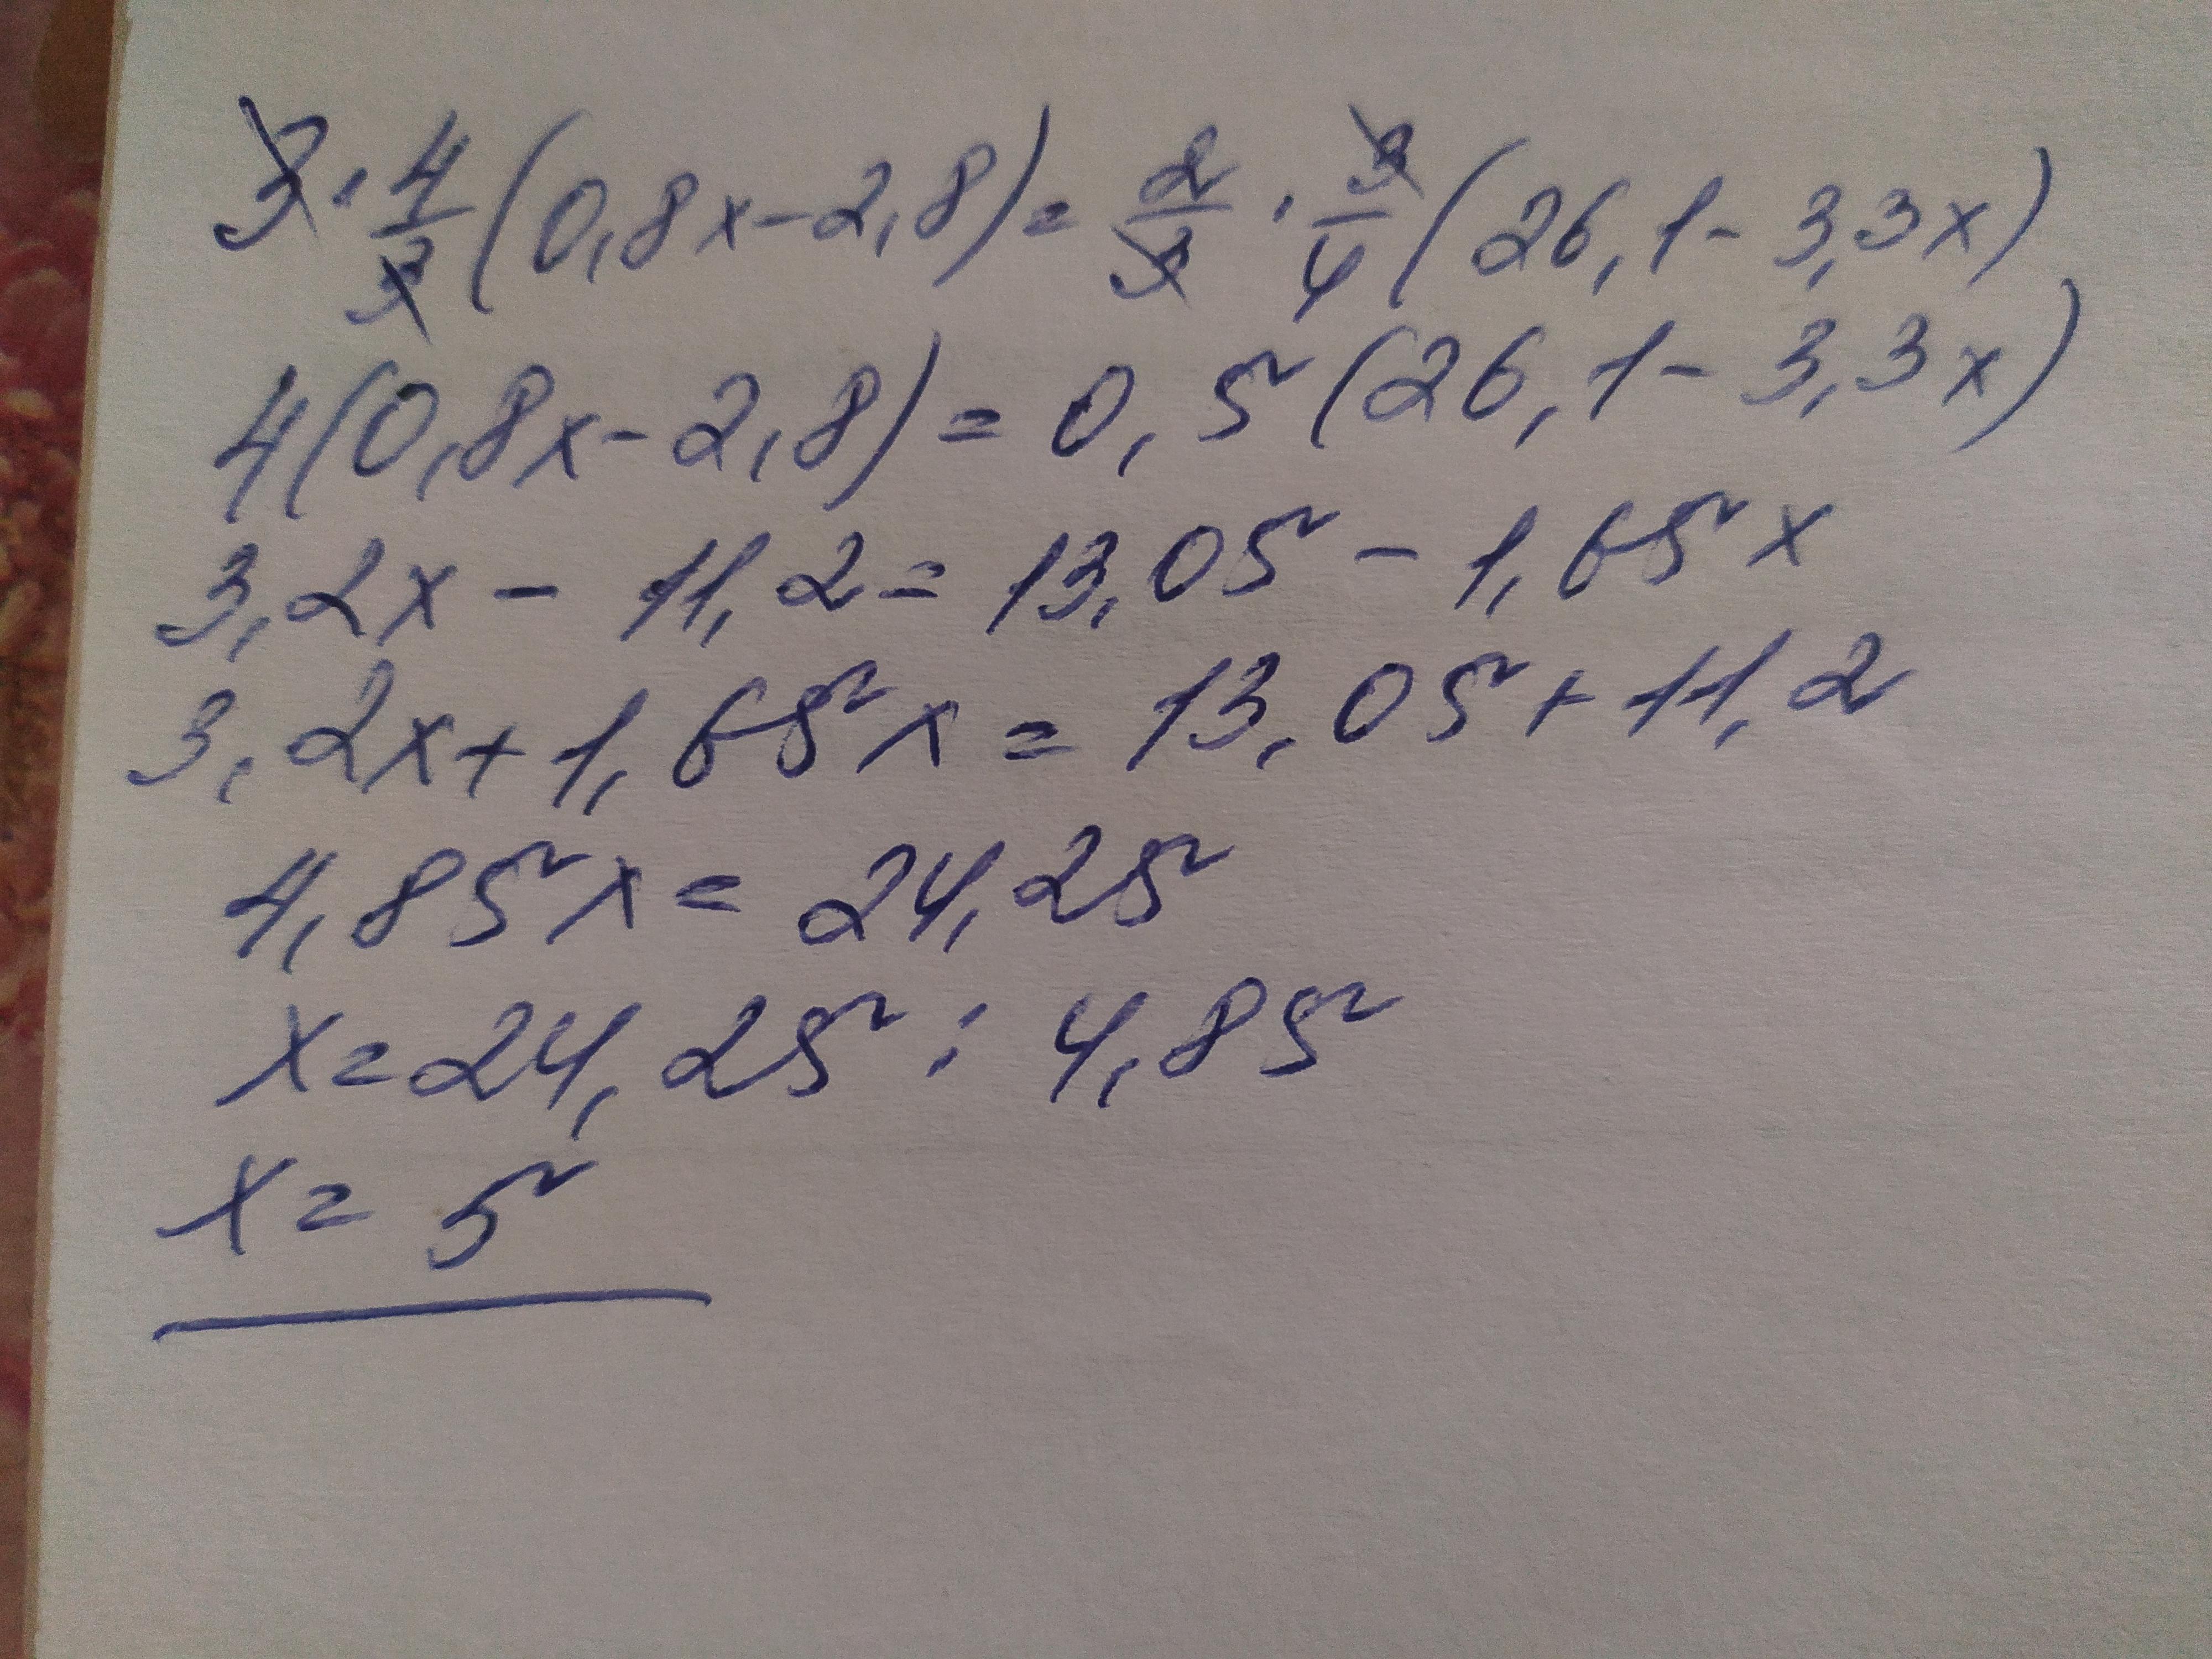 3 · 4/3 (0,8x - 2,8) = 2/3 · 3/4 (26,1 - 3,3x)
4(0,8x - 2,8) = 0,5(26,1 - 3,3x)
3,2x - 11,2 = 13,05 - 1,65x
3,2x + 1,65x = 13,05 + 11,2
4,85x = 24,25
x = 24,25 : 4,85
x = 5